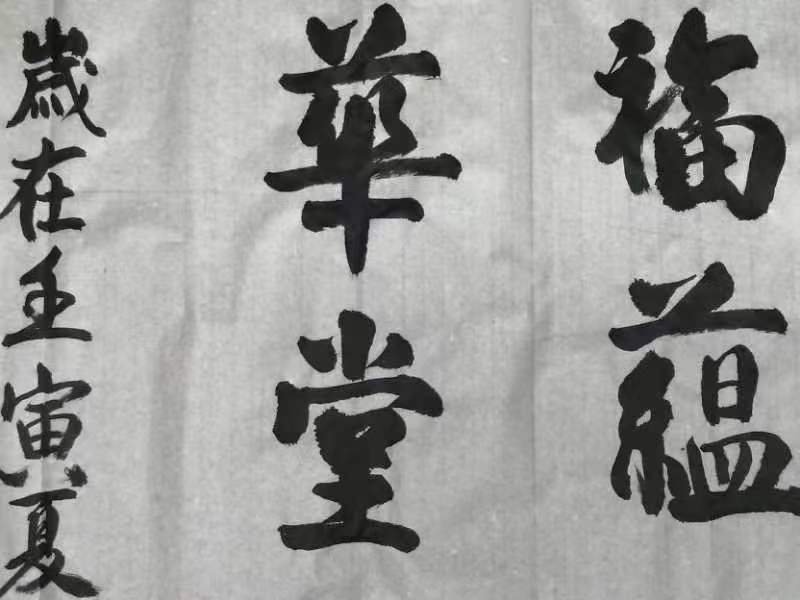 福蕴
華堂
歲在壬寅夏